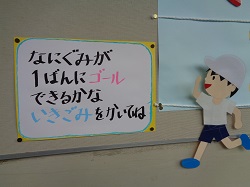 なにぐみが
1ばんにゴール
できるかな
いきごみをかいてね